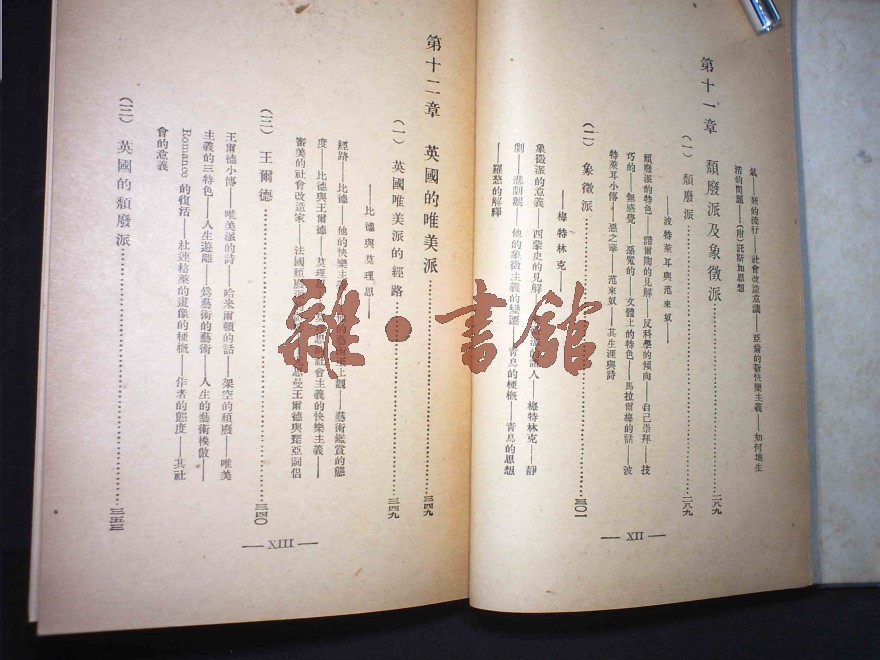 氣——新的流行——社會改造意識——亞倫的新快樂主義——如何地生
活的問題——（附）託斯加思想
第十一章　頹廢派及象徵派……二八九
（一）頹廢派……二八九
——波特萊耳與范來奴——
頹廢派的特色——諾爾陶的見解——反科學的傾向——自己崇拜——技
巧的——無感覺——惡魔的——文體上的特色——馬拉爾梅的話——波
特萊耳小傳——惡之華——范來奴——其生涯與詩
（二）象徵派……三〇一
——梅特林克——
象徵派的意義——西蒙史的見解——派的詩人——梅特林克——靜
劇——悲劇觀——他的象徵主義的變遷——青鳥的梗概——青鳥的思想
——羅愁的解釋
— XII —
第十二章　英國的唯美派……三四九
（一）英國唯美派的經路……三四九
——比德與莫理思——
經路——比德——他的快樂主義——藝術至上觀——藝術鑑賞的態
度——比德與王爾德——莫理思——社會主義的快樂主義——
審美的社會改造家——法國頹廢曼王爾德與琵亞詞侶
（二）王爾德……三四〇
王爾德小傳——唯美派的詩——哈米爾頓的話——架空的頹廢——唯美
主義的三特色——人生遊離——爲藝術的藝術——人生的藝術模倣——
Romance 的復活——杜連格萊的畫像的梗概——作者的態度——其社
會的意義
（三）英國的頹廢派……三五三
— XIII —
雜·書館